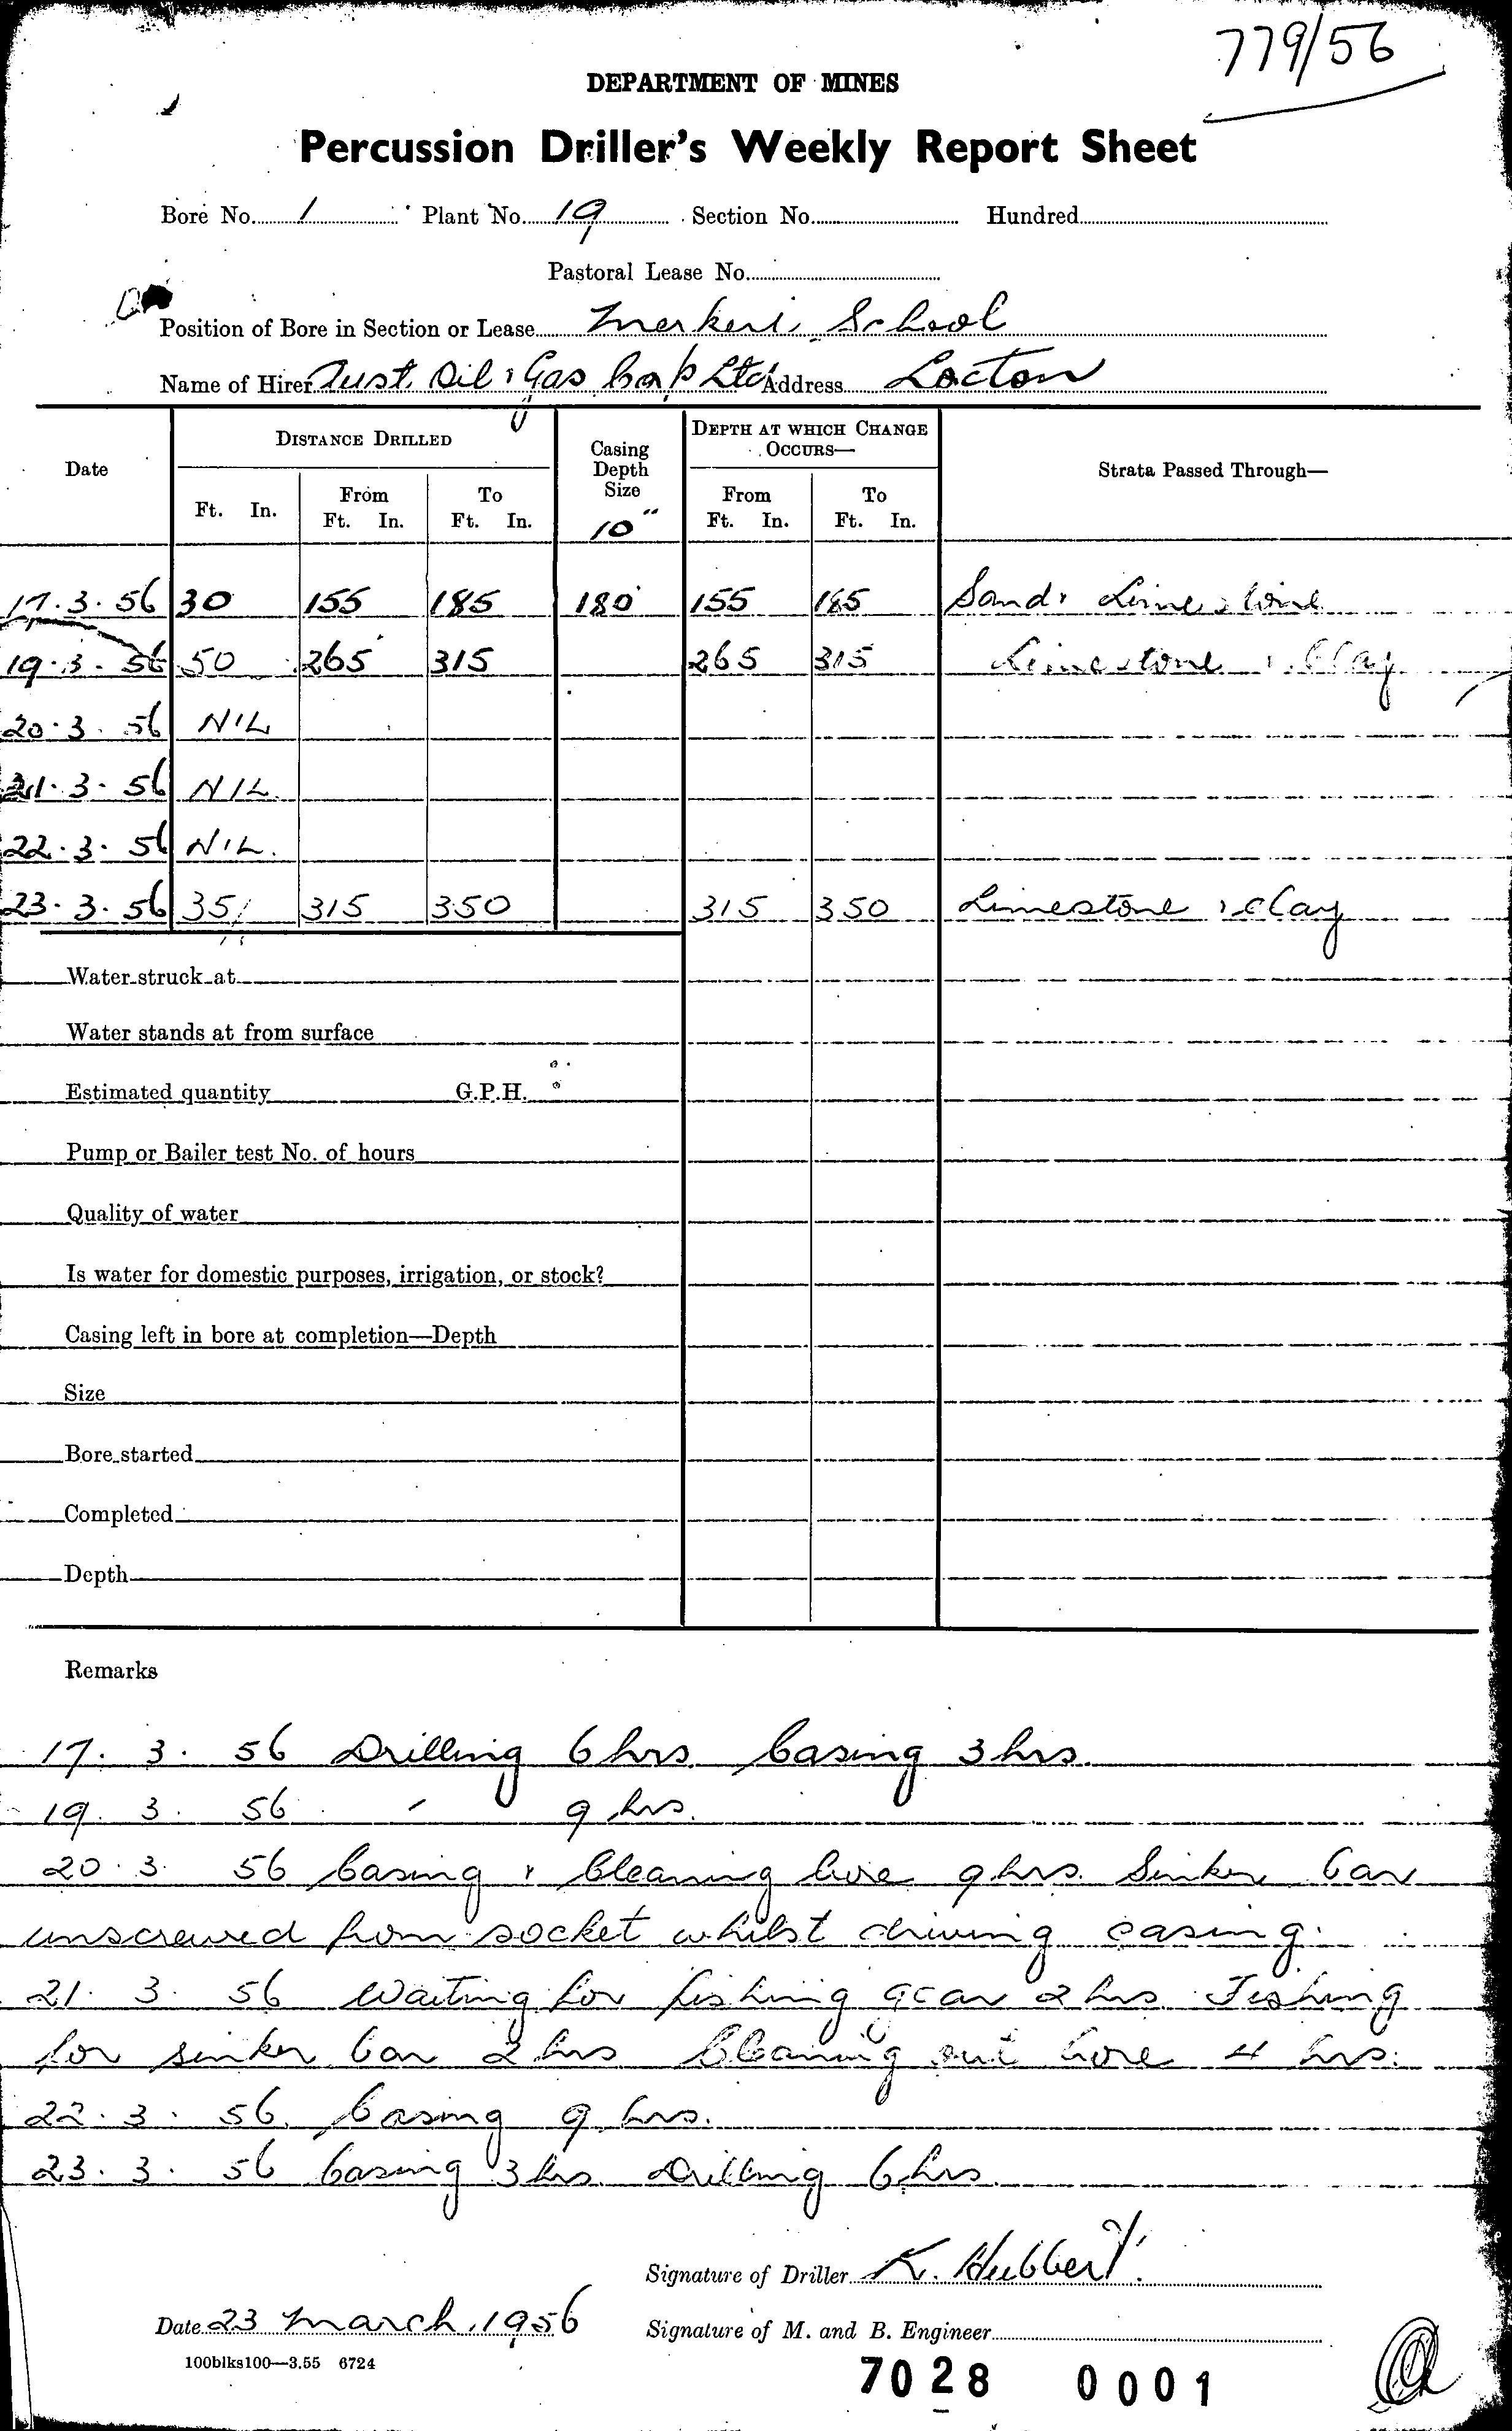 779/56
DEPARTMENT OF MINES
Percussion Driller's Weekly Report Sheet
Bore No. 1 Plant No. 19 Section No. Hundred
Pastoral Lease No.
Position of Bore in Section or Lease School
Name of Hirer Aust. Oil & Gas Corp Ltd Address Loxton
Date DISTANCE DRILLED Casing Depth Size 10" DEPTH AT WHICH CHANGE OCCURS— Strata Passed Through—
Ft. In. From Ft. In. To Ft. In. From Ft. In. To Ft. In.
17.3.56 30 155 185 180 155 185 Sand & Limestone
19.3.56 50 265 315 265 315 Limestone & Clay
20.3.56 NIL
21.3.56 NIL
22.3.56 NIL.
23.3.56 35 315 350 315 350 Limestone & Clay
Water struck at
Water stands at from surface
Estimated quantity G.P.H.
Pump or Bailer test No. of hours
Quality of water
Is water for domestic purposes, irrigation, or stock?
Casing left in bore at completion—Depth
Size
Bore started
Completed
Depth
Remarks
17. 3. 56 Drilling 6 hrs. Casing 3 hrs.
19. 3. 56 " 9 hrs.
20. 3. 56 Casing & Cleaning bore 9 hrs. Sinker bar
unscrewed from socket whilst driving casing.
21. 3. 56 Waiting for fishing gear 2 hrs Fishing
for sinker bar 2 hrs Cleaning out bore 4 hrs.
22. 3. 56. Casing 9 hrs.
23. 3. 56 Casing 3 hrs. Drilling 6 hrs.
Signature of Driller K. Hubbert.
Date 23 March, 1956 Signature of M. and B. Engineer
100blks100—3.55 6724
7028 0001